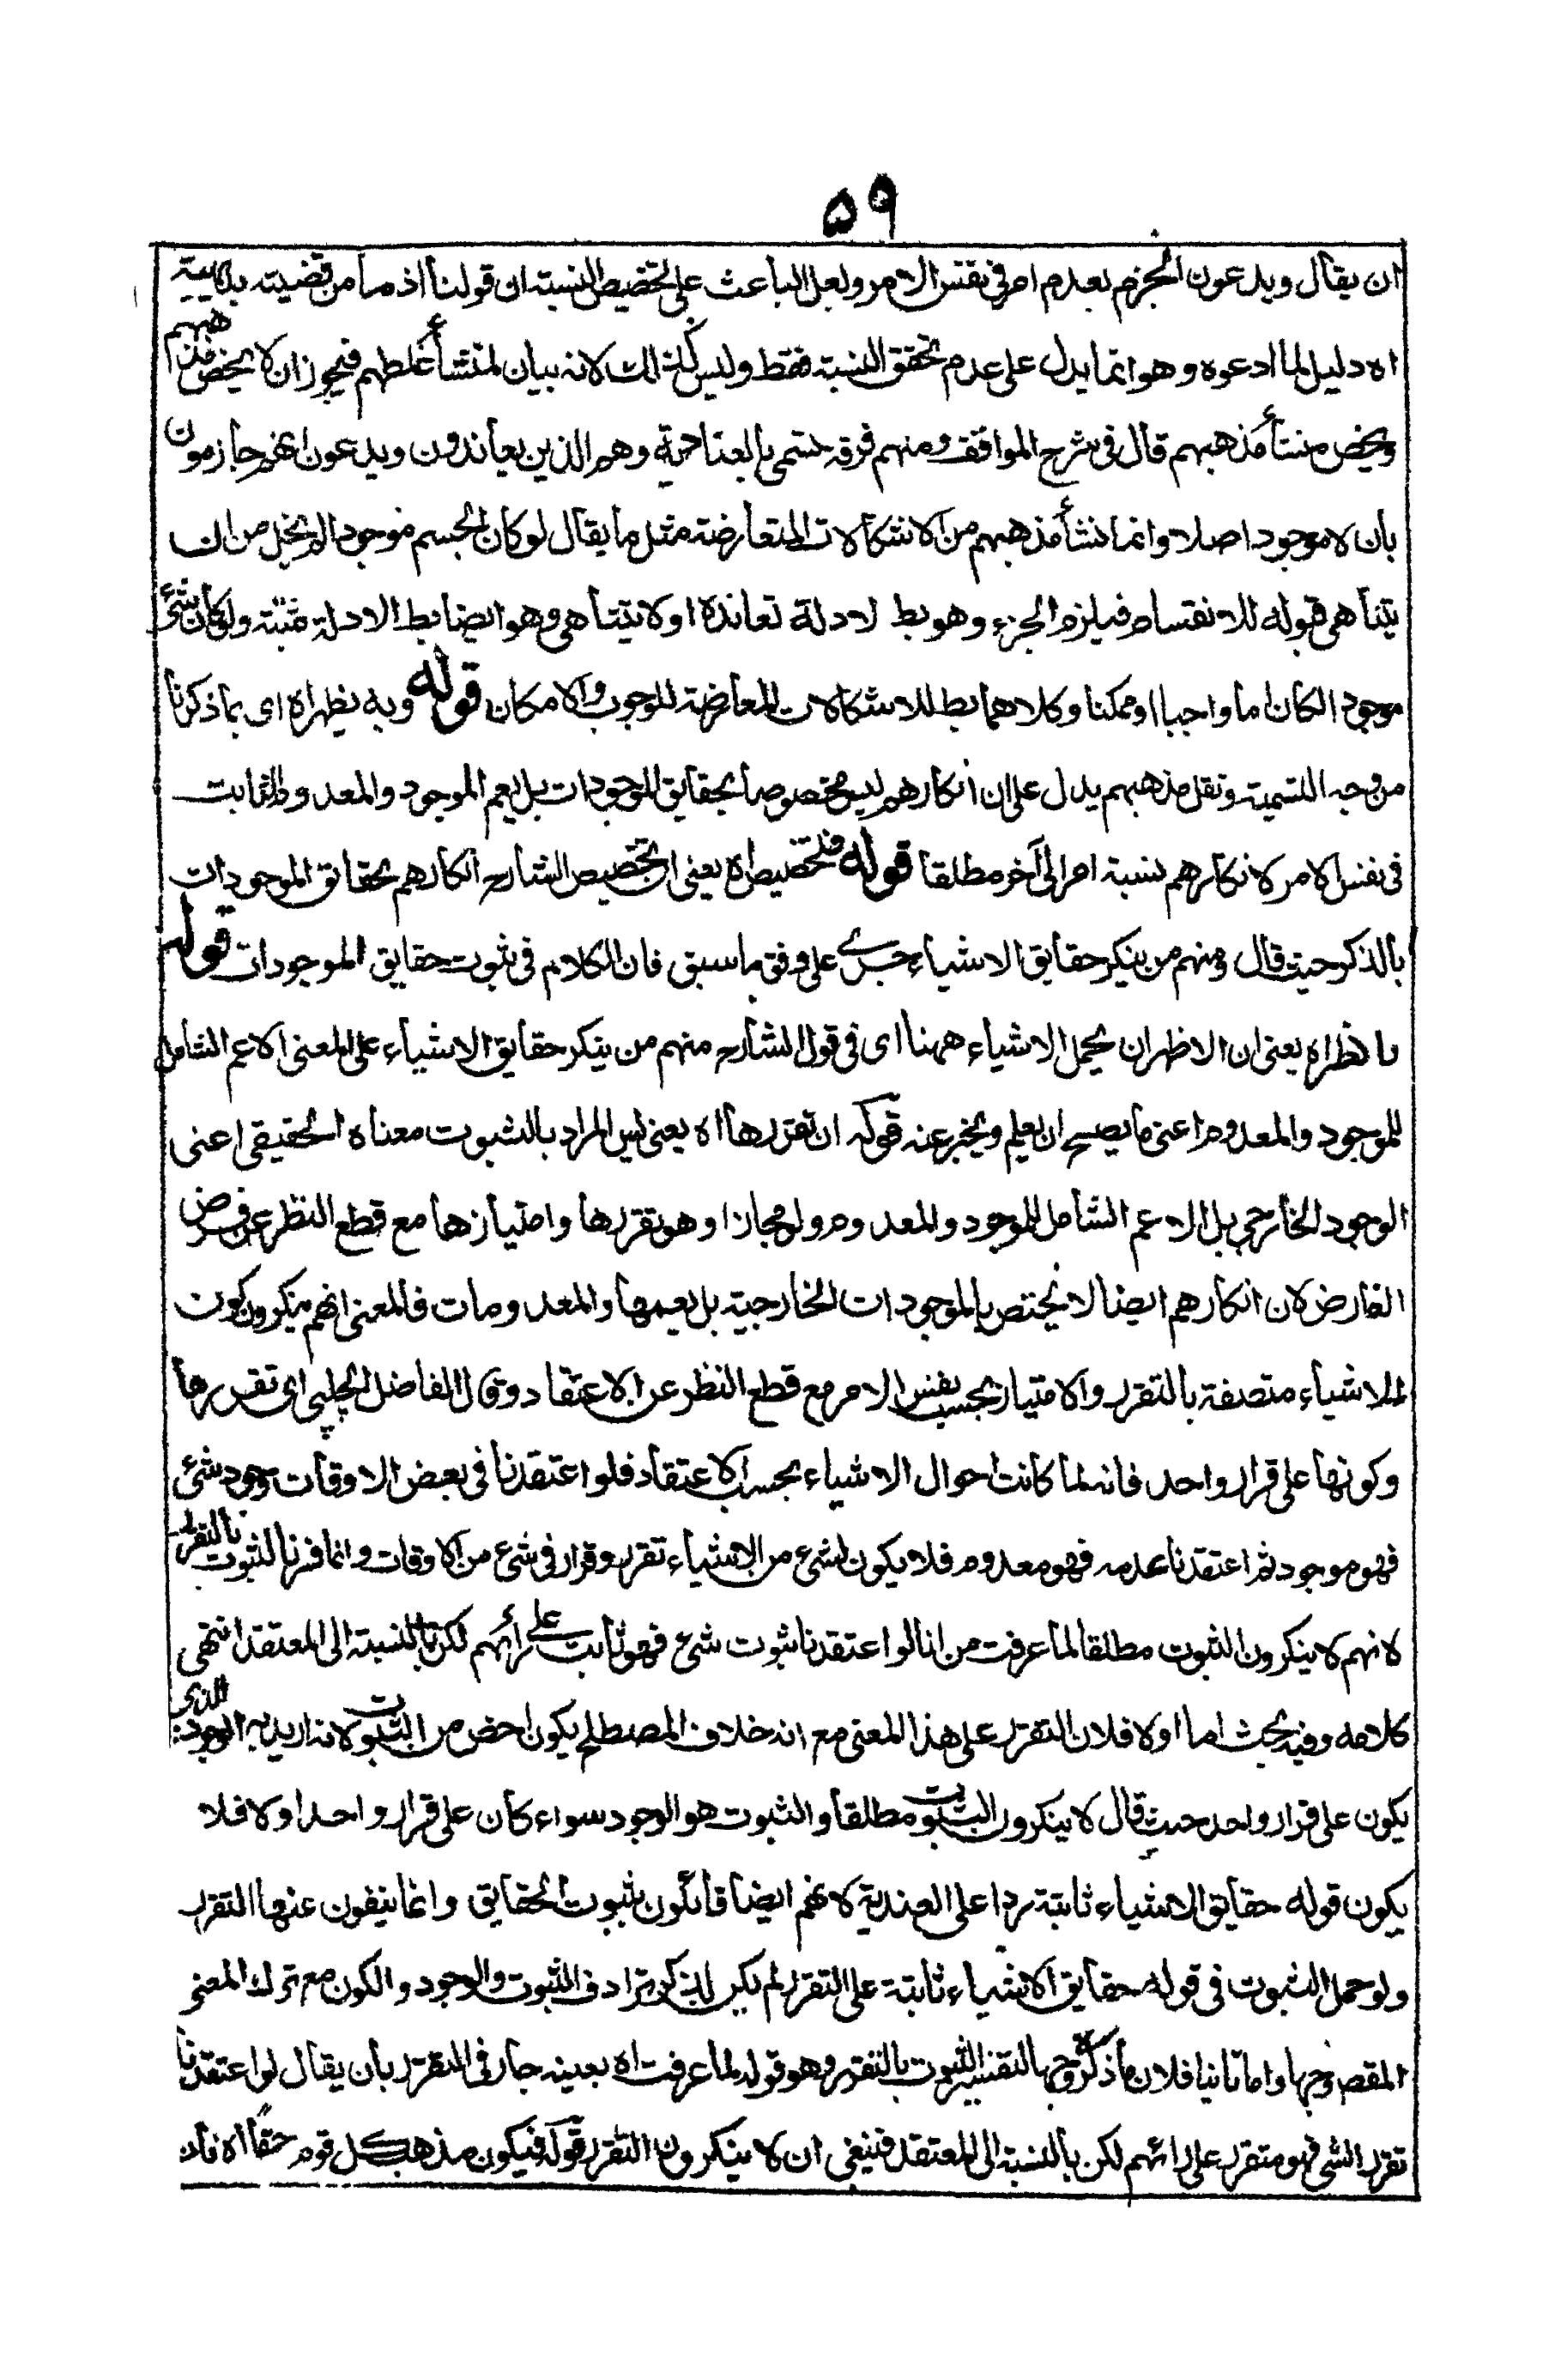 ٥٩
ان يقال ويدعون الجزم بعدم امر فى نفس الامر ولعل الباعث على التخصيص النسبة ان قولنا اذ ما من قضية بديهية
اه دليل لما ادعوه وهو انما يدل على عدم تحقق النسبة فقط وليس كذلك لانه بيان لمنشأ غلطهم فيجوز ان لا يخص مذهبهم
ويخص منشأ مذهبهم قال فى شرح المواقف ومنهم فرقة تسمى بالعنادية وهم الذين يعاندون ويدعون انهم جازمون
بان لا موجود اصلا وانما نشأ مذهبهم من الاشكالات المتعارضة مثل ما يقال لو كان الجسم موجودا لم يخل من ان
يتناهى قبوله للانقسام فيلزم الجزء وهو بط لادلة تعانده او لا يتناهى وهو ايضا بط لادلة مثبتة ولو كان شئ
موجودا لكان اما واجبا او ممكنا وكلاهما بط للاشكالات المعارضة للوجوب والامكان قوله وبه يظهر اه اى بما ذكرنا
من وجه التسمية ونقل مذهبهم يدل على ان انكارهم ليس مخصوصا بحقايق الموجودات بل يعم الموجود والمعدوم الثابت
فى نفس الامر لانكارهم نسبة امر الى آخر مطلقا قوله فتخصيص اه يعنى ان تخصيص الشارح انكارهم بحقايق الموجودات
بالذكر حيث قال ومنهم من ينكر حقايق الاشياء جرى على وفق ما سبق فان الكلام فى ثبوت حقايق الموجودات قوله
الاظهر اه يعنى ان الاظهر ان يحمل الاشياء ههنا اى فى قول الشارح منهم من ينكر حقايق الاشياء على المعنى الاعم الشامل
للموجود والمعدوم اعنى ما يصح ان يعلم ويخبر عنه قوله ان تقررها اه يعنى ليس المراد بالثبوت معناه الحقيقى اعنى
الوجود الخارجى بل الاعم الشامل للموجود والمعدوم ولو مجازا وهو تقررها وامتيازها مع قطع النظر عن فرض
الفارض لان انكارهم ايضا لا يختص بالموجودات الخارجية بل يعمها والمعدومات فالمعنى انهم ينكرون كون
الاشياء متصفة بالتقرر والامتياز بحسب نفس الامر مع قطع النظر عن الاعتقاد وقال الفاضل الچلپى اى تقررها
وكونها على قرار واحد فانه لما كانت احوال الاشياء بحسب الاعتقاد فلو اعتقدنا فى بعض الاوقات وجود شئ
فهو موجود ثم اعتقدنا عدمه فهو معدوم فلا يكون لشئ من الاشياء تقرر وقرار فى شئ من الاوقات وانما فسرنا الثبوت بالتقرر
لانهم لا ينكرون الثبوت مطلقا لما عرفت من انا لو اعتقدنا ثبوت شئ فهو ثابت على رأئهم لكن بالنسبة الى المعتقد انتهى
كلامه وفيه بحث اما اولا فلان التقرر على هذا المعنى مع انه خلاف المصطلح يكون اخص من الثبوت لانه اريد به الوجود الذى
يكون على قرار واحد حيث قال لا ينكرون الثبوت مطلقا والثبوت هو الوجود سواء كان على قرار واحد او لا فلا
يكون قوله حقايق الاشياء ثابتة ردا على العندية لانهم ايضا قائلون بثبوت الحقايق وانما ينفون عنها التقرر
ولو حمل الثبوت فى قوله حقايق الاشياء ثابتة على التقرر لم يكن لذكر ترادف الثبوت والوجود والكون مع ترك المعنى
المقصود وجها واما ثانيا فلان ما ذكره وجها لتفسير الثبوت بالتقرر وهو قوله لما عرفت اه بعينه جار فى التقرر بان يقال لو اعتقدنا
تقرر الشى فهو متقرر على رائهم لكن بالنسبة الى المعتقد فينبغى ان لا ينكرون التقرر قوله فيكون مذهب كل قوم حقا اه فان